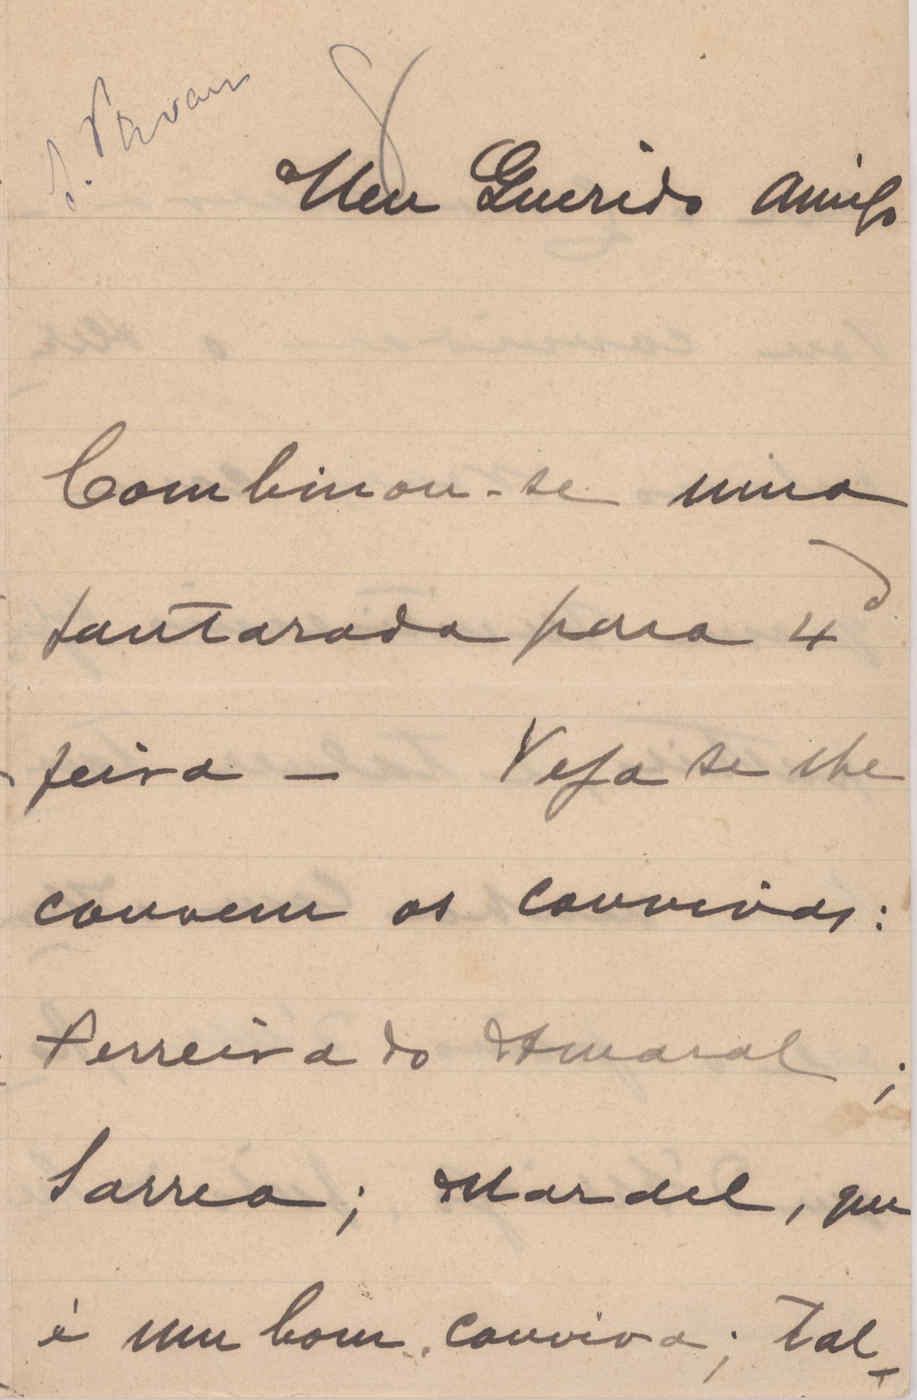 Meu Querido Amigo
Combinou-se uma
jantarada para 4ª
feira — Veja se lhe
convem os convivas:
Ferreira do Amaral;
Sarrea; Mardel, que
é um bom conviva; Tal-